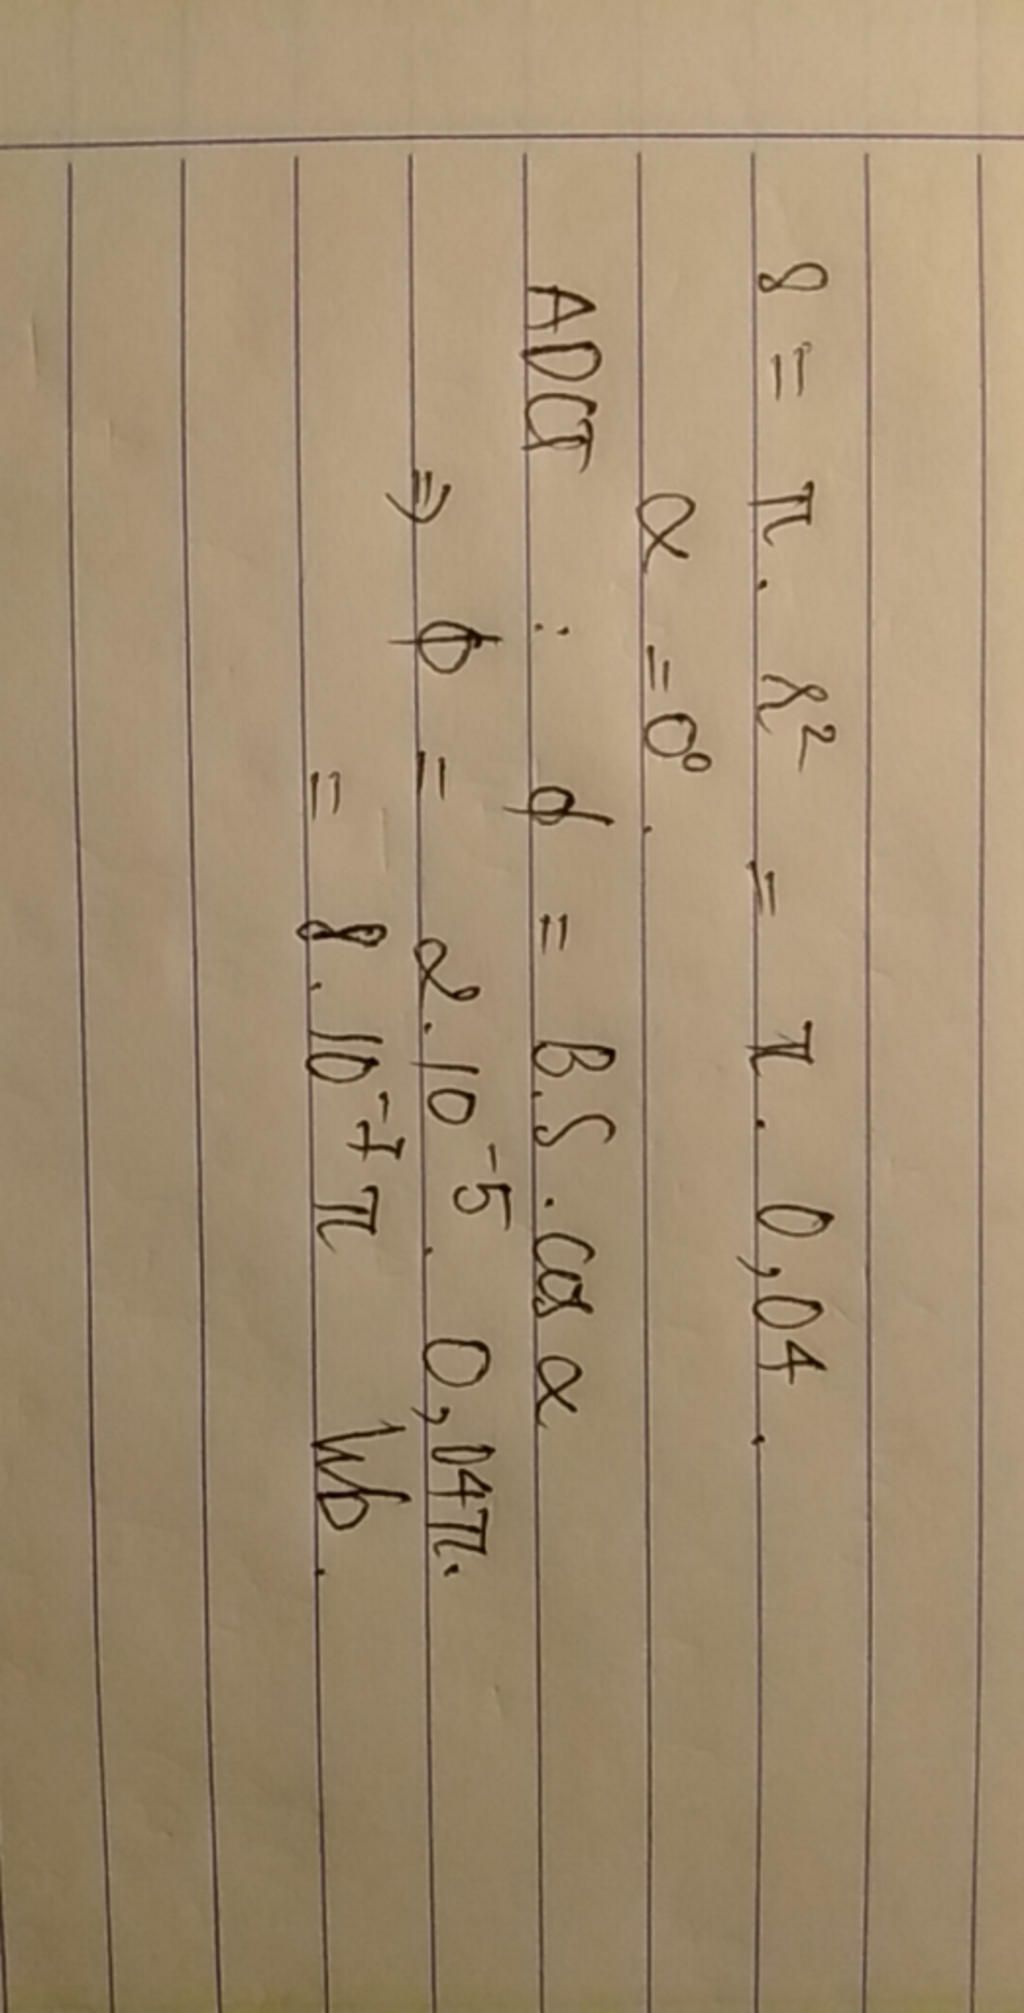 S = π . r² = π . 0,04 .
α = 0° .
ADCT : ϕ = B.S . cos α
⇒ ϕ = 2.10⁻⁵ . 0,04π.
= 8.10⁻⁷ π Wb .